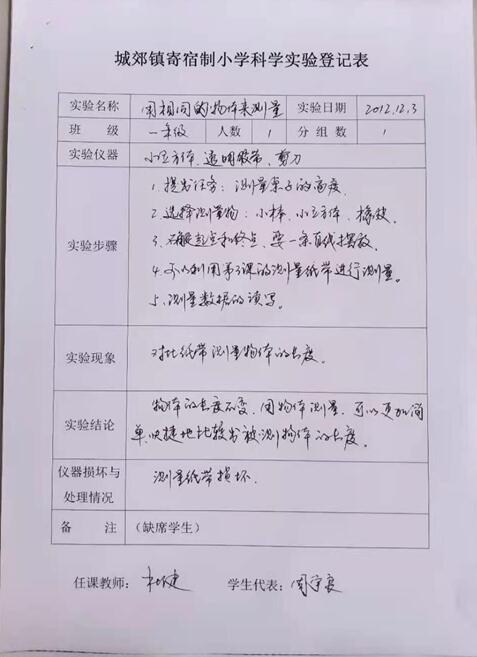 城郊镇寄宿制小学科学实验登记表
实验名称 用相同的物体来测量 实验日期 2012.12.3
班 级 一年级 人数 1 分组数 1
实验仪器 小立方体、透明胶带、剪刀
实验步骤
1、提出任务:测量桌子的高度.
2、选择测量物:小棒、小立方体、橡皮.
3、确定起点和终点、要一条直线摆放.
4、可以利用第3课的测量纸带进行测量。
5、测量数据的读写。
实验现象 对比纸带测量物体的长度。
实验结论
物体的长度不变,用物体测量,可以更加简
单、快捷地比较出被测物体的长度。
仪器损坏与
处理情况
测量纸带损坏.
备 注 (缺席学生)
任课教师: 学生代表: